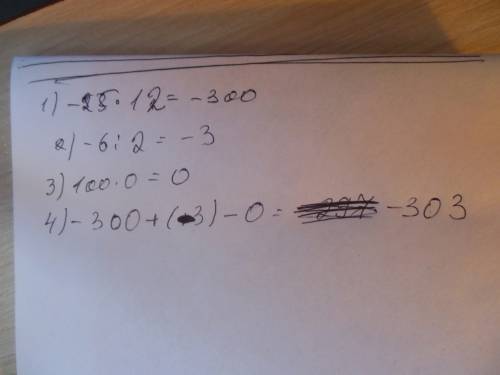 1) -25·12=-300
2) -6:2=-3
3) 100·0=0
4) -300+(-3)-0= -303